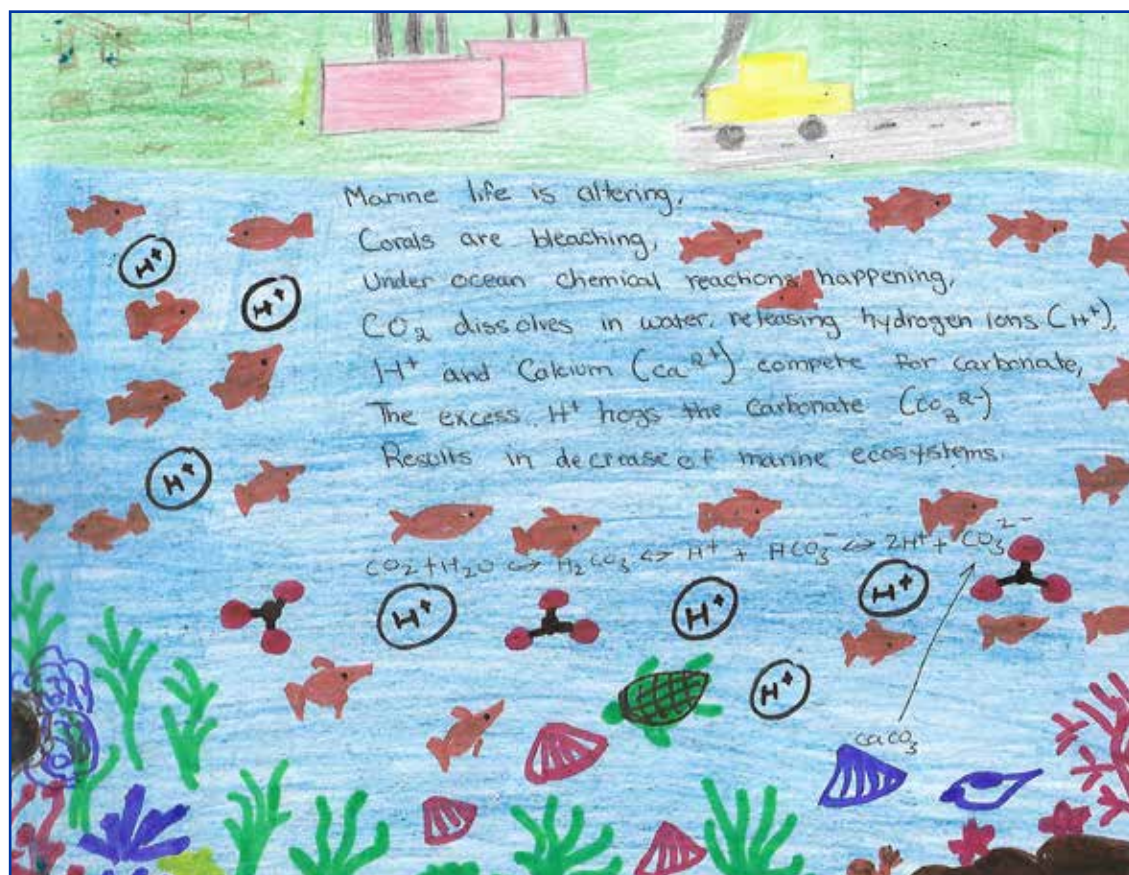 Marine life is altering,
Corals are bleaching,
Under ocean chemical reactions happening,
CO₂ dissolves in water, releasing hydrogen ions (H⁺),
H⁺ and Calcium (Ca²⁺) compete for carbonate,
The excess H⁺ hogs the carbonate (CO₃²⁻)
Results in decrease of marine ecosystems.
H⁺
H⁺
H⁺
CO₂ + H₂O ⇔ H₂CO₃ ⇔ H⁺ + HCO₃⁻ ⇔ 2H⁺ + CO₃²⁻
H⁺
H⁺
H⁺
H⁺
CaCO₃